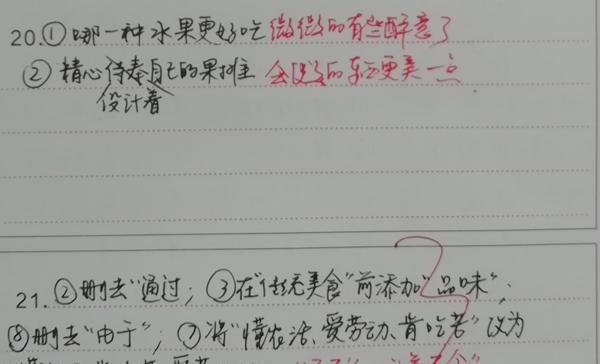 20.①哪一种水果更好吃 微微的有些醉意了
②精心侍奉自己的果摊 更美一点
设计着
21.②删去"通过";③在"传统美食"前添加"品味";
⑧删去"由于";⑦将"懂农活、爱劳动、肯吃苦"改为